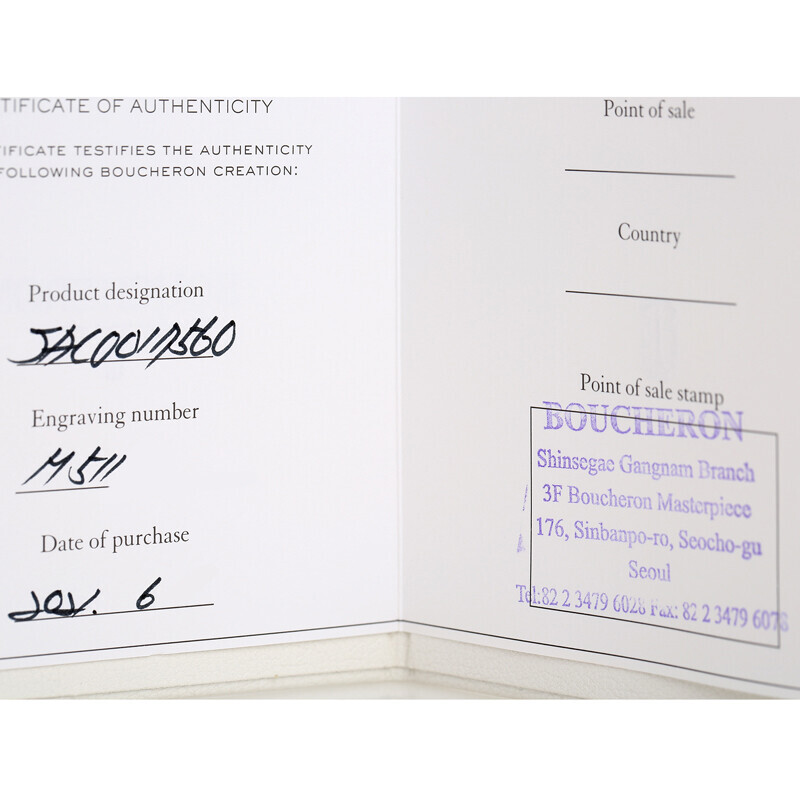 TIFICATE OF AUTHENTICITY
IFICATE TESTIFIES THE AUTHENTICITY
FOLLOWING BOUCHERON CREATION:
Product designation
JAC0017560
Engraving number
M511
Date of purchase
6
Point of sale
Country
Point of sale stamp
BOUCHERON
Shinsegae Gangnam Branch
3F Boucheron Masterpiece
176, Sinbanpo-ro, Seocho-gu
Seoul
Tel:82 2 3479 6028 Fax: 82 2 3479 6078